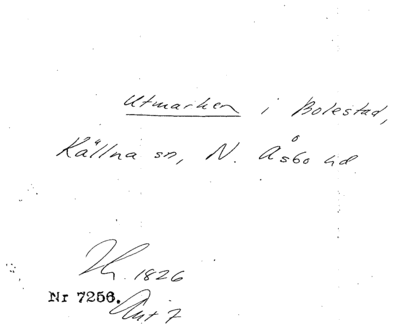 Utmarken i Bolestad,
Källna sn, N. Åsbo hd
1826
Nr 7256.
Akt 7